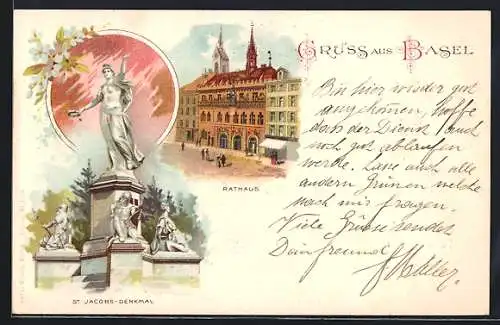 GRUSS AUS BASEL
Bin hier wieder gut
angekom̄en, hoffe
dass der Dienst auch
noch gut ablaufen
werde. Lass auch alle
andern Grünen welche
nach mir fragen.
Viele Grüsse sendet
Dein freund
RATHAUS
ST. JACOBS-DENKMAL